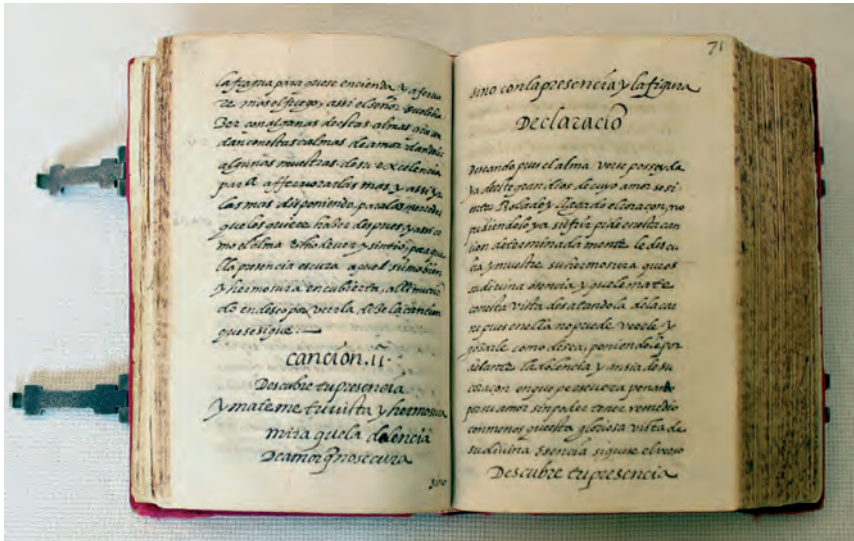 la fragua para que se encienda y afervo
re mas el fuego, assi el señor suele ha
Zer con algunas destas almas que an
dan con estas calmas de amor, dandoles
algunas muestras de su excelencia
para affervorarlas mas, y assi yr
las mas disponiendo, para las mercedes
que les quiere hazer despues y assi co
mo el alma echo de ver y sintio, por aque
lla presencia escura aquel sumo bien
y hermosura encubierta, alli
do en deseo por verla, dize la cancion
que se sigue.
cancion. 11.
Descubre tu presencia
y mateme tu vista y hermosura
mira que la dolencia
De amor q̃ no se cura
sino
71
sino con la presencia y la figura
Declaracio
Deseando pues el alma verse posseyda
ya deste gran dios de cuyo amor se si
ente Robado y llagado el coraçon, no
pudiendolo ya sufrir pide en esta can
cion determinada mente le descu
bra y muestre su hermosura que es
su divina esencia y que le mate
con esta vista desatandola de la car
ne pues en ella no puede verle y
gozarle como desea, poniendole por
delante la dolencia y ansia de su
coraçon en que persevera penando
por su amor sin poder tener remedio
con menos que esta gloriosa vista de
su divina Esencia siguese el verso
Descubre tu presencia